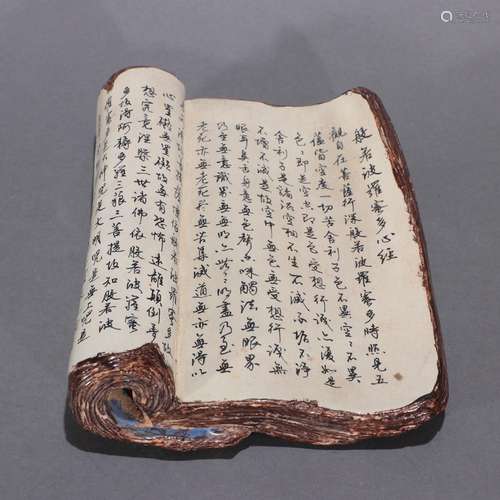 般若波羅蜜多心經
觀自在菩薩行深般若波羅蜜多時照見五
蘊皆空度一切苦舍利子色不異空〻不異
色〻即是空空即是色受想行識亦復如是
舍利子是諸法空相不生不滅不垢不淨
不增不減是故空中無色無受想行識無
眼耳鼻舌身意無色聲香味觸法無眼界
乃至無意識界無無明亦無〻明盡乃至無
老死亦無老死盡無苦集滅道無亦無得以
依般若波羅蜜多故
心無罣礙無罣礙故無有恐怖遠離顛倒夢
想究竟涅槃三世諸佛依般若波羅蜜
多故得阿耨多羅三藐三菩提故知般若波
羅蜜多是大神咒是大明咒是無上咒是